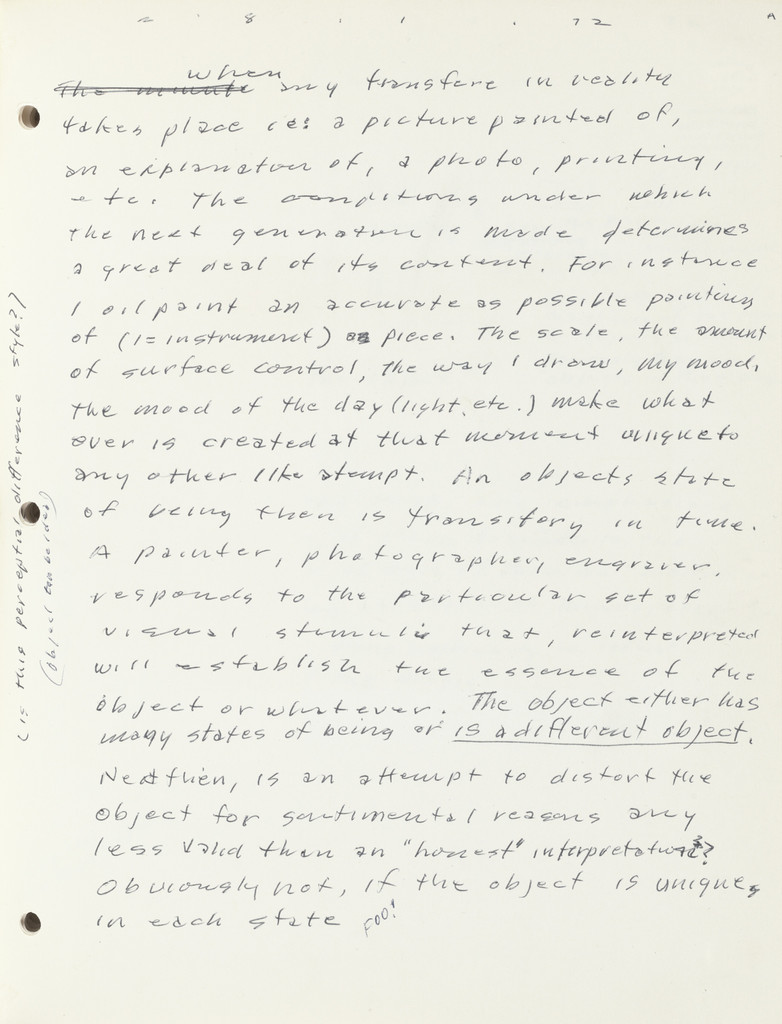 8 1 72 A
When
The minute any transfere in reality
takes place ie: a picture painted of,
an explanation of, a photo, printing,
etc. The conditions under which
the next generation is made determines
a great deal of its content. For instance
I oil paint an accurate as possible painting
of (1=instrument) piece. The scale, the amount
of surface control, the way I draw, my mood,
the mood of the day (light, etc.) make what
ever is created at that moment unique to
any other like atempt. An objects state
of being then is transitory in time.
A painter, photographer, engraver,
responds to the particular set of
visual stimuli that, reinterpreted
will establish the essence of the
object or whatever. The object either has
many states of being or is a different object.
Next then, is an attempt to distort the
object for sentimental reasons any
less valid than an "honest" interpretation?
Obviously not, if the object is unique,
in each state FOO!
(is this perceptial difference style?)
(object can be idea)